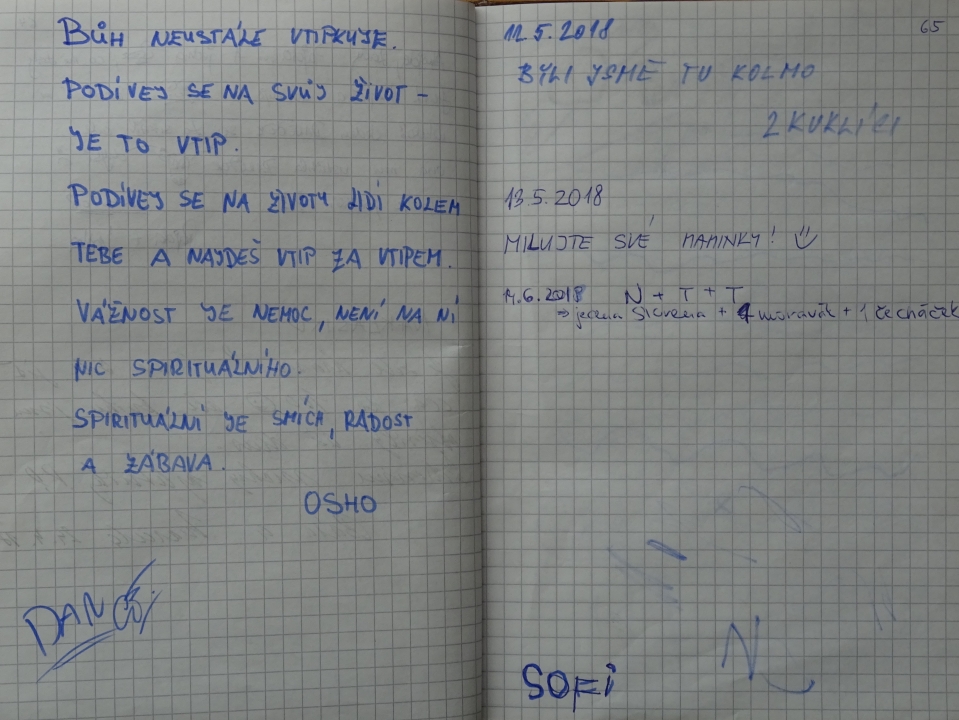 BŮH NEUSTÁLE VTIPKUJE.
PODÍVEJ SE NA SVŮJ ŽIVOT -
JE TO VTIP.
PODÍVEJ SE NA ŽIVOTY LIDÍ KOLEM
TEBE A NAJDEŠ VTIP ZA VTIPEM.
VÁŽNOST JE NEMOC, NENÍ NA NÍ
NIC SPIRITUÁLNÍHO.
SPIRITUÁLNÍ JE SMÍCH, RADOST
A ZÁBAVA.
OSHO
65
12.5.2018
BYLI JSME TU KOLMO
2 KUKLÍCI
13.5.2018
MILUJTE SVÉ MAMINKY!
14.6.2018 N + T + T
⇒ jedna Slovena + 1 moravák + 1 čecháček
N
SOFI